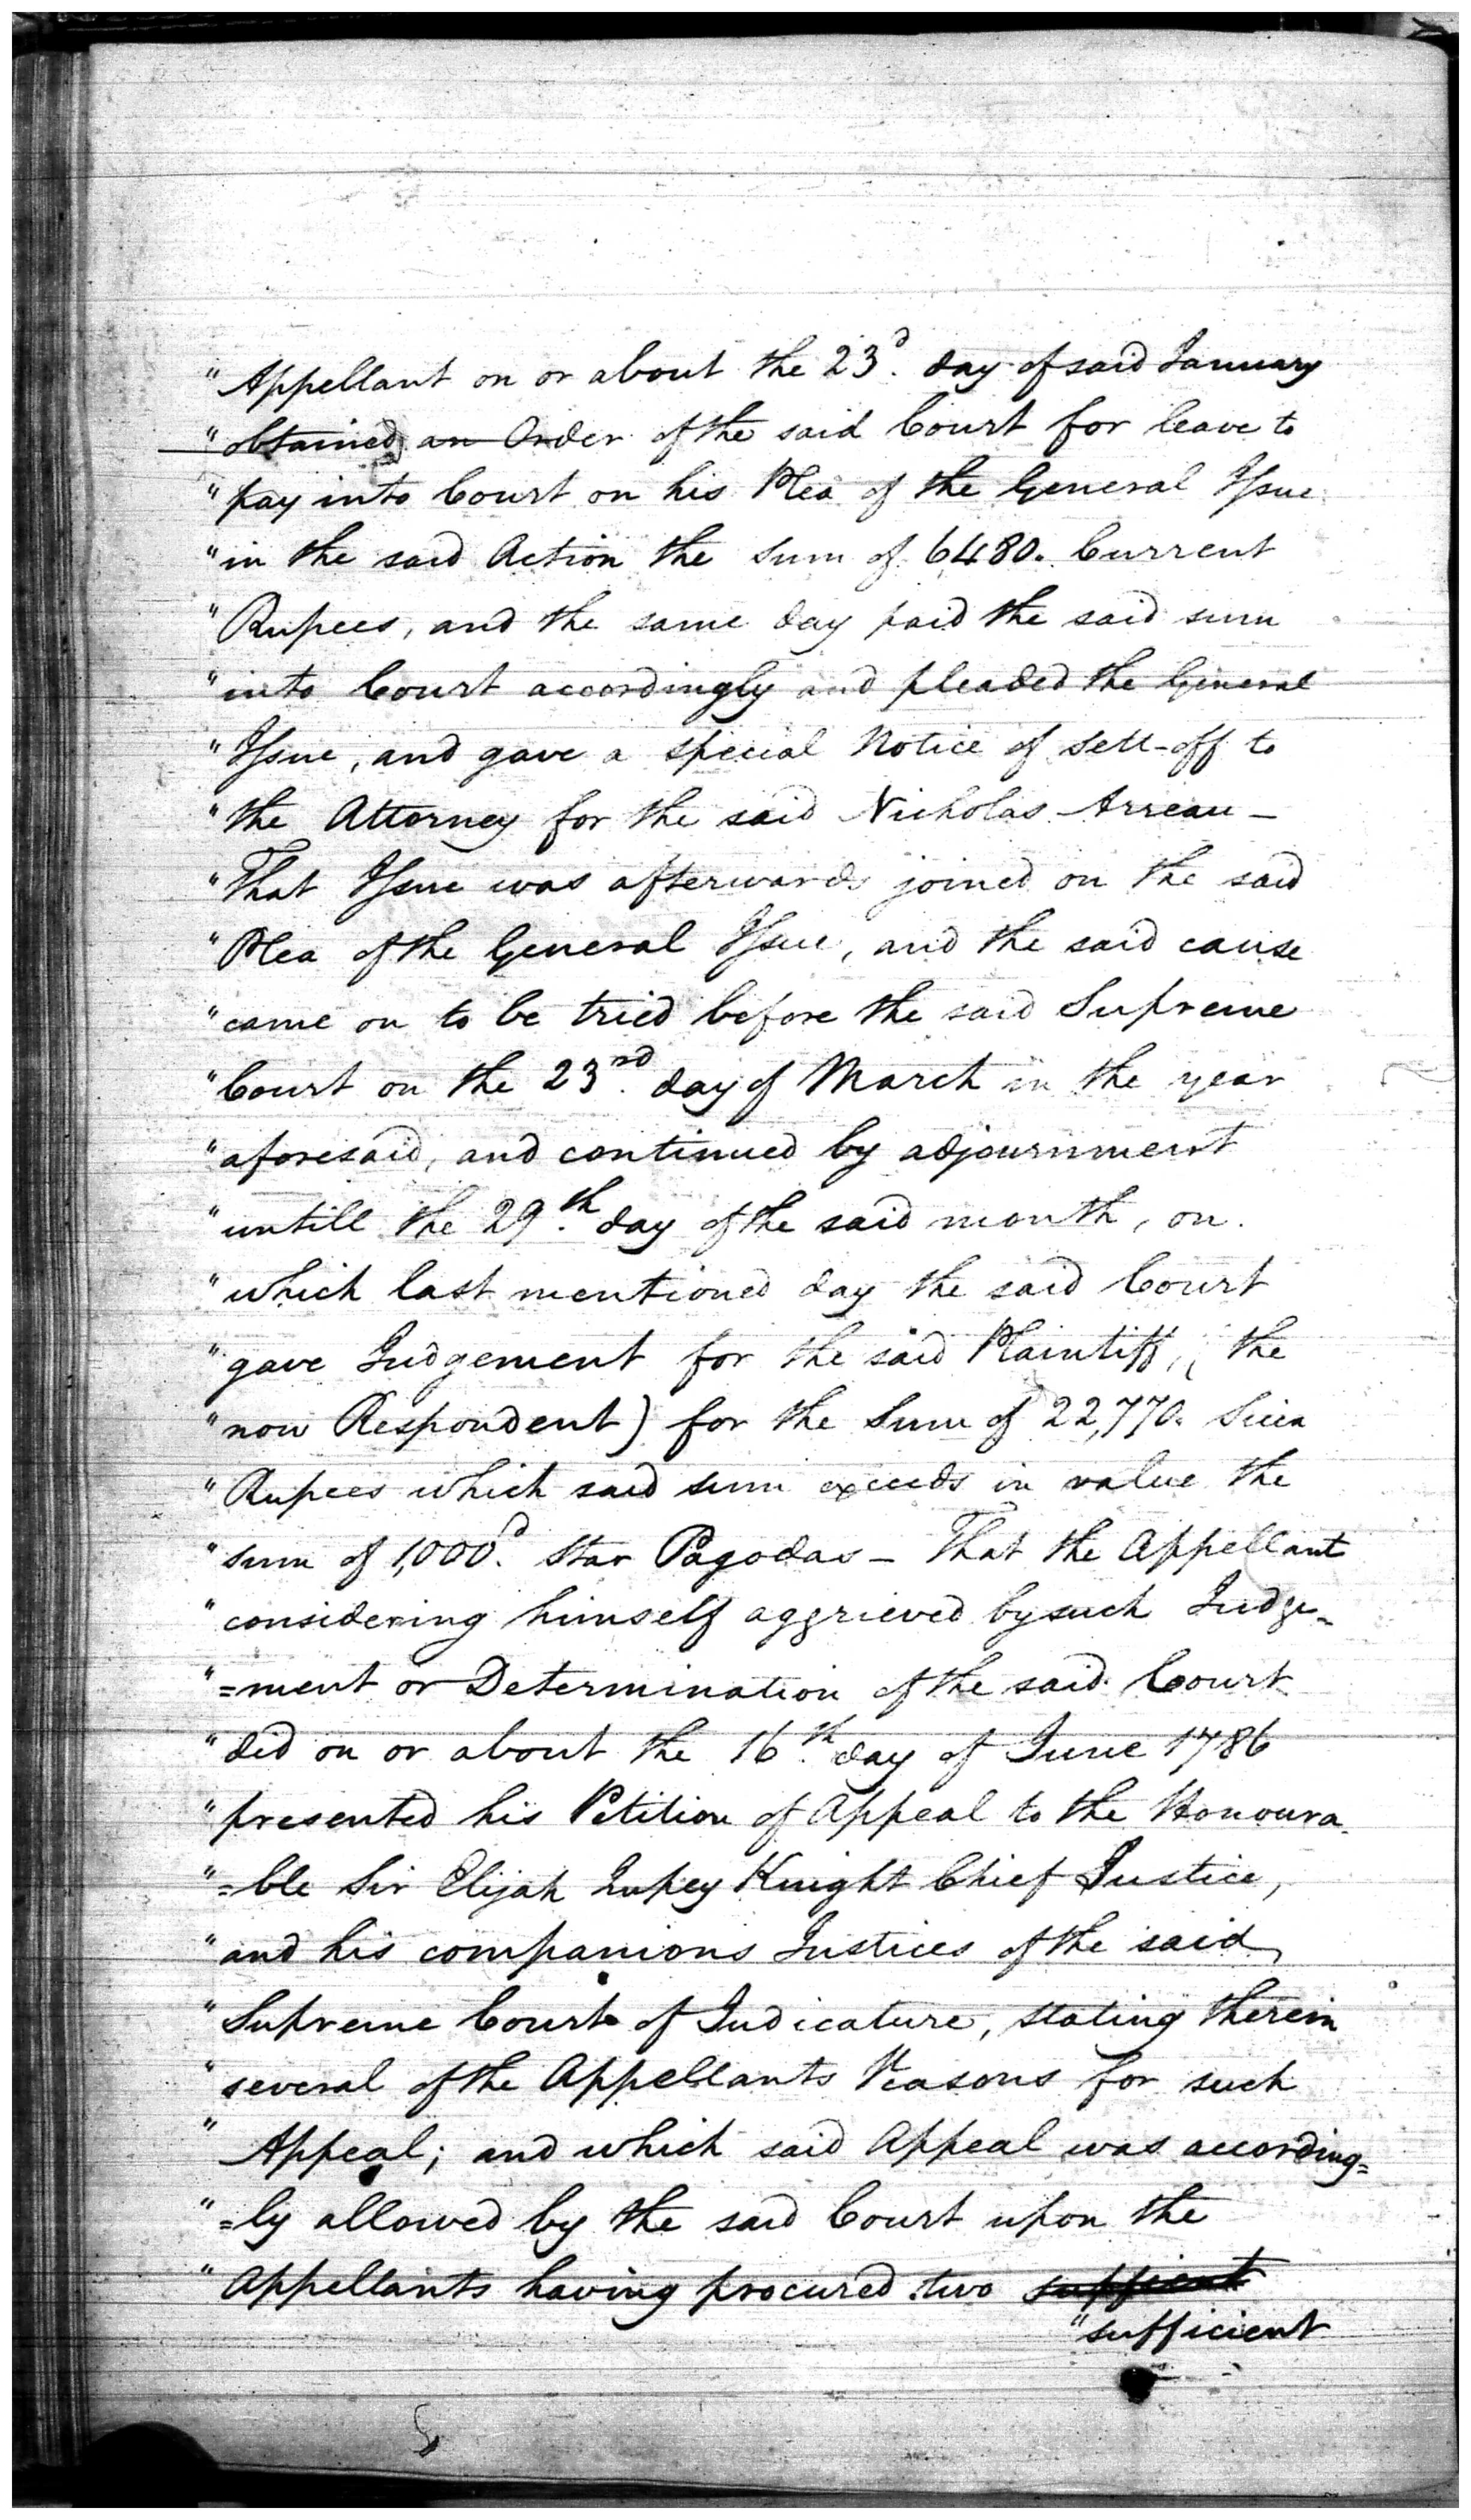 "Appellant on or about the 23d. day of said January
"obtained an Order of the said Court for leave to
"pay into Court on his Plea of the General Issue
"in the said Action the sum of 6480. Current
"Rupees, and the same day paid the said sum
"into Court accordingly and pleaded the General
"Issue, and gave a special Notice of sett-off to
"the Attorney for the said Nicholas Arreau -
"That Issue was afterwards joined on the said
"Plea of the General Issue, and the said cause
"came on to be tried before the said Supreme
"Court on the 23rd. day of March in the year
"aforesaid, and continued by adjournment
"untill the 29.th day of the said month, on.
"which last mentioned day the said Court
"gave Judgement for the said Plaintiff, (the
"now Respondent) for the Sum of 22,770. Sicca
"Rupees which said sum exceeds in value the
"sum of 1,000d. Star Pagodas - That the Appellant
"considering himself aggrieved by such Judge-
"=ment or Determination of the said Court
"did on or about the 16.th day of June 1786
"presented his Petition of Appeal to the Honoura-
"=ble Sir Elijah Impey Knight Chief Justice,
"and his companions Justices of the said
"Supreme Court of Judicature, stating therein
"several of the Appellants Reasons for such
"Appeal; and which said Appeal was according=
"=ly allowed by the said Court upon the
"Appellants having procured two suffient
"sufficient